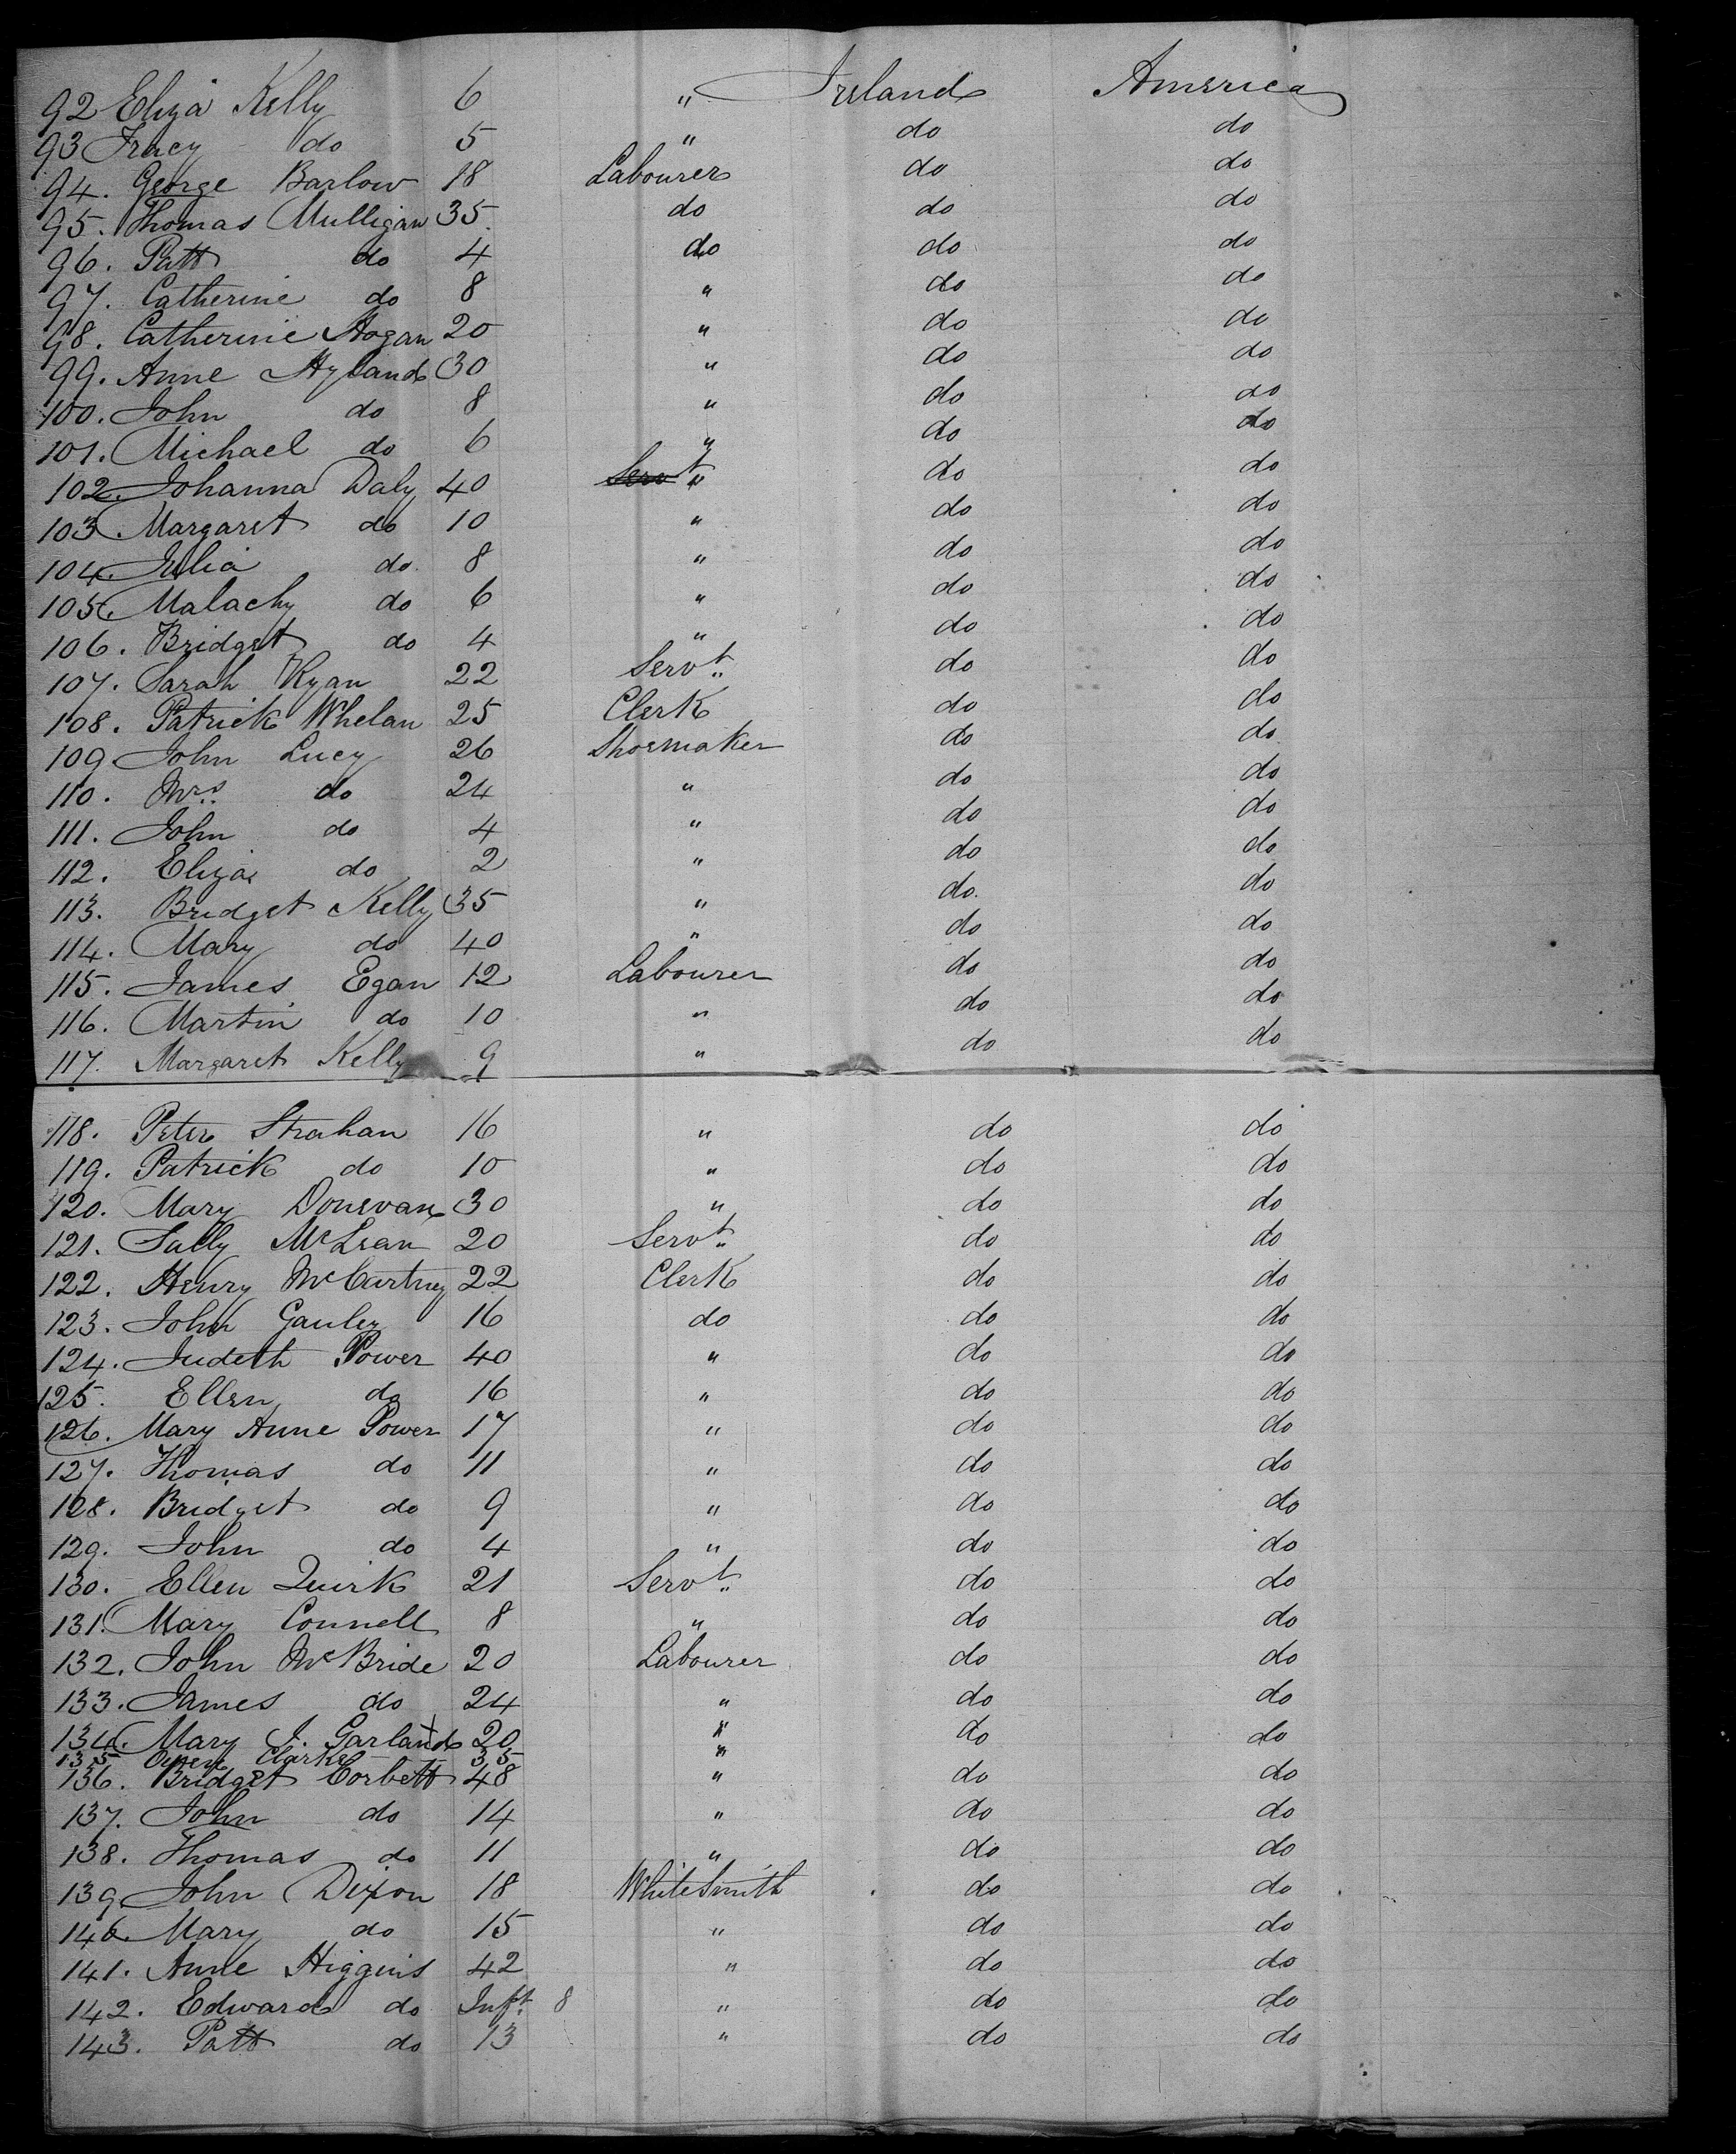 92 Eliza Kelly 6 " Ireland America
93 Tracy do 5 " do do
94. George Barlow 18 Labourer do do
95. Thomas Mulligan 35. do do do
96. Patt do 4 do do do
97. Catherine do 8 " do do
98. Catherine Hogan 20 " do do
99. Anne Hyland 30 " do do
100. John do 8 " do do
101. Michael do 6 " do do
102. Johanna Daly 40 Servt " do do
103. Margaret do 10 " do do
104. Julia do 8 " do do
105. Malachy do 6 " do do
106. Bridget do 4 " do do
107. Sarah Ryan 22 Servt do do
108. Patrick Whelan 25 Clerk do do
109 John Lucy 26 Shoemaker do do
110. Mrs. do 24 " do do
111. John do 4 " do do
112. Eliza do 2 " do do
113. Bridget Kelly 35 " do. do
114. Mary do 40 " do do
115. James Egan 12 Labourer do do
116. Martin do 10 " do do
117. Margaret Kelly 9 " do do
118. Peter Strahan 16 " do do
119. Patrick do 10 " do do
120. Mary Donevan 30 " do do
121. Sally McLean 20 Servt do do
122. Henry McCartney 22 Clerk do do
123. John Gauley 16 do do do
124. Judeth Power 40 " do do
125. Ellen do 16 " do do
126. Mary Anne Power 17 " do do
127. Thomas do 11 " do do
128. Bridget do 9 " do do
129. John do 4 " do do
130. Ellen Quirk 21 Servt do do
131. Mary Connell 8 " do do
132. John McBride 20 Labourer do do
133. James do 24 " do do
134. Mary J. Garland 20 " do do
135 Owen Clarke 35 "
136. Bridget Corbett 48 " do do
137. John do 14 " do do
138. Thomas do 11 " do do
139 John Dixon 18 WhiteSmith do do
140. Mary do 15 " do do
141. Anne Higgins 42 " do do
142. Edward do Inft. 8 " do do
143. Patt do 13 " do do